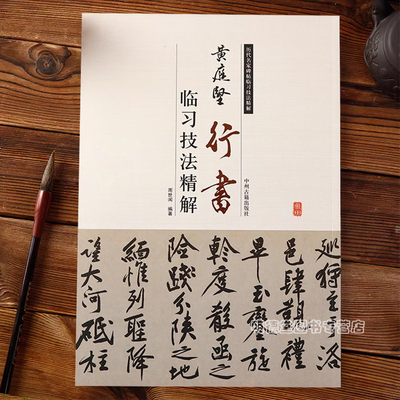 历代名家碑帖临习技法精解
黄庭坚
行書
临习技法精解
编著
中州古籍出版社
巡狩至于洛
邑肆覲禮
畢玉鑾旋
軫度殽函之
險踐分陝之地
緬惟列聖降
望大河砥柱